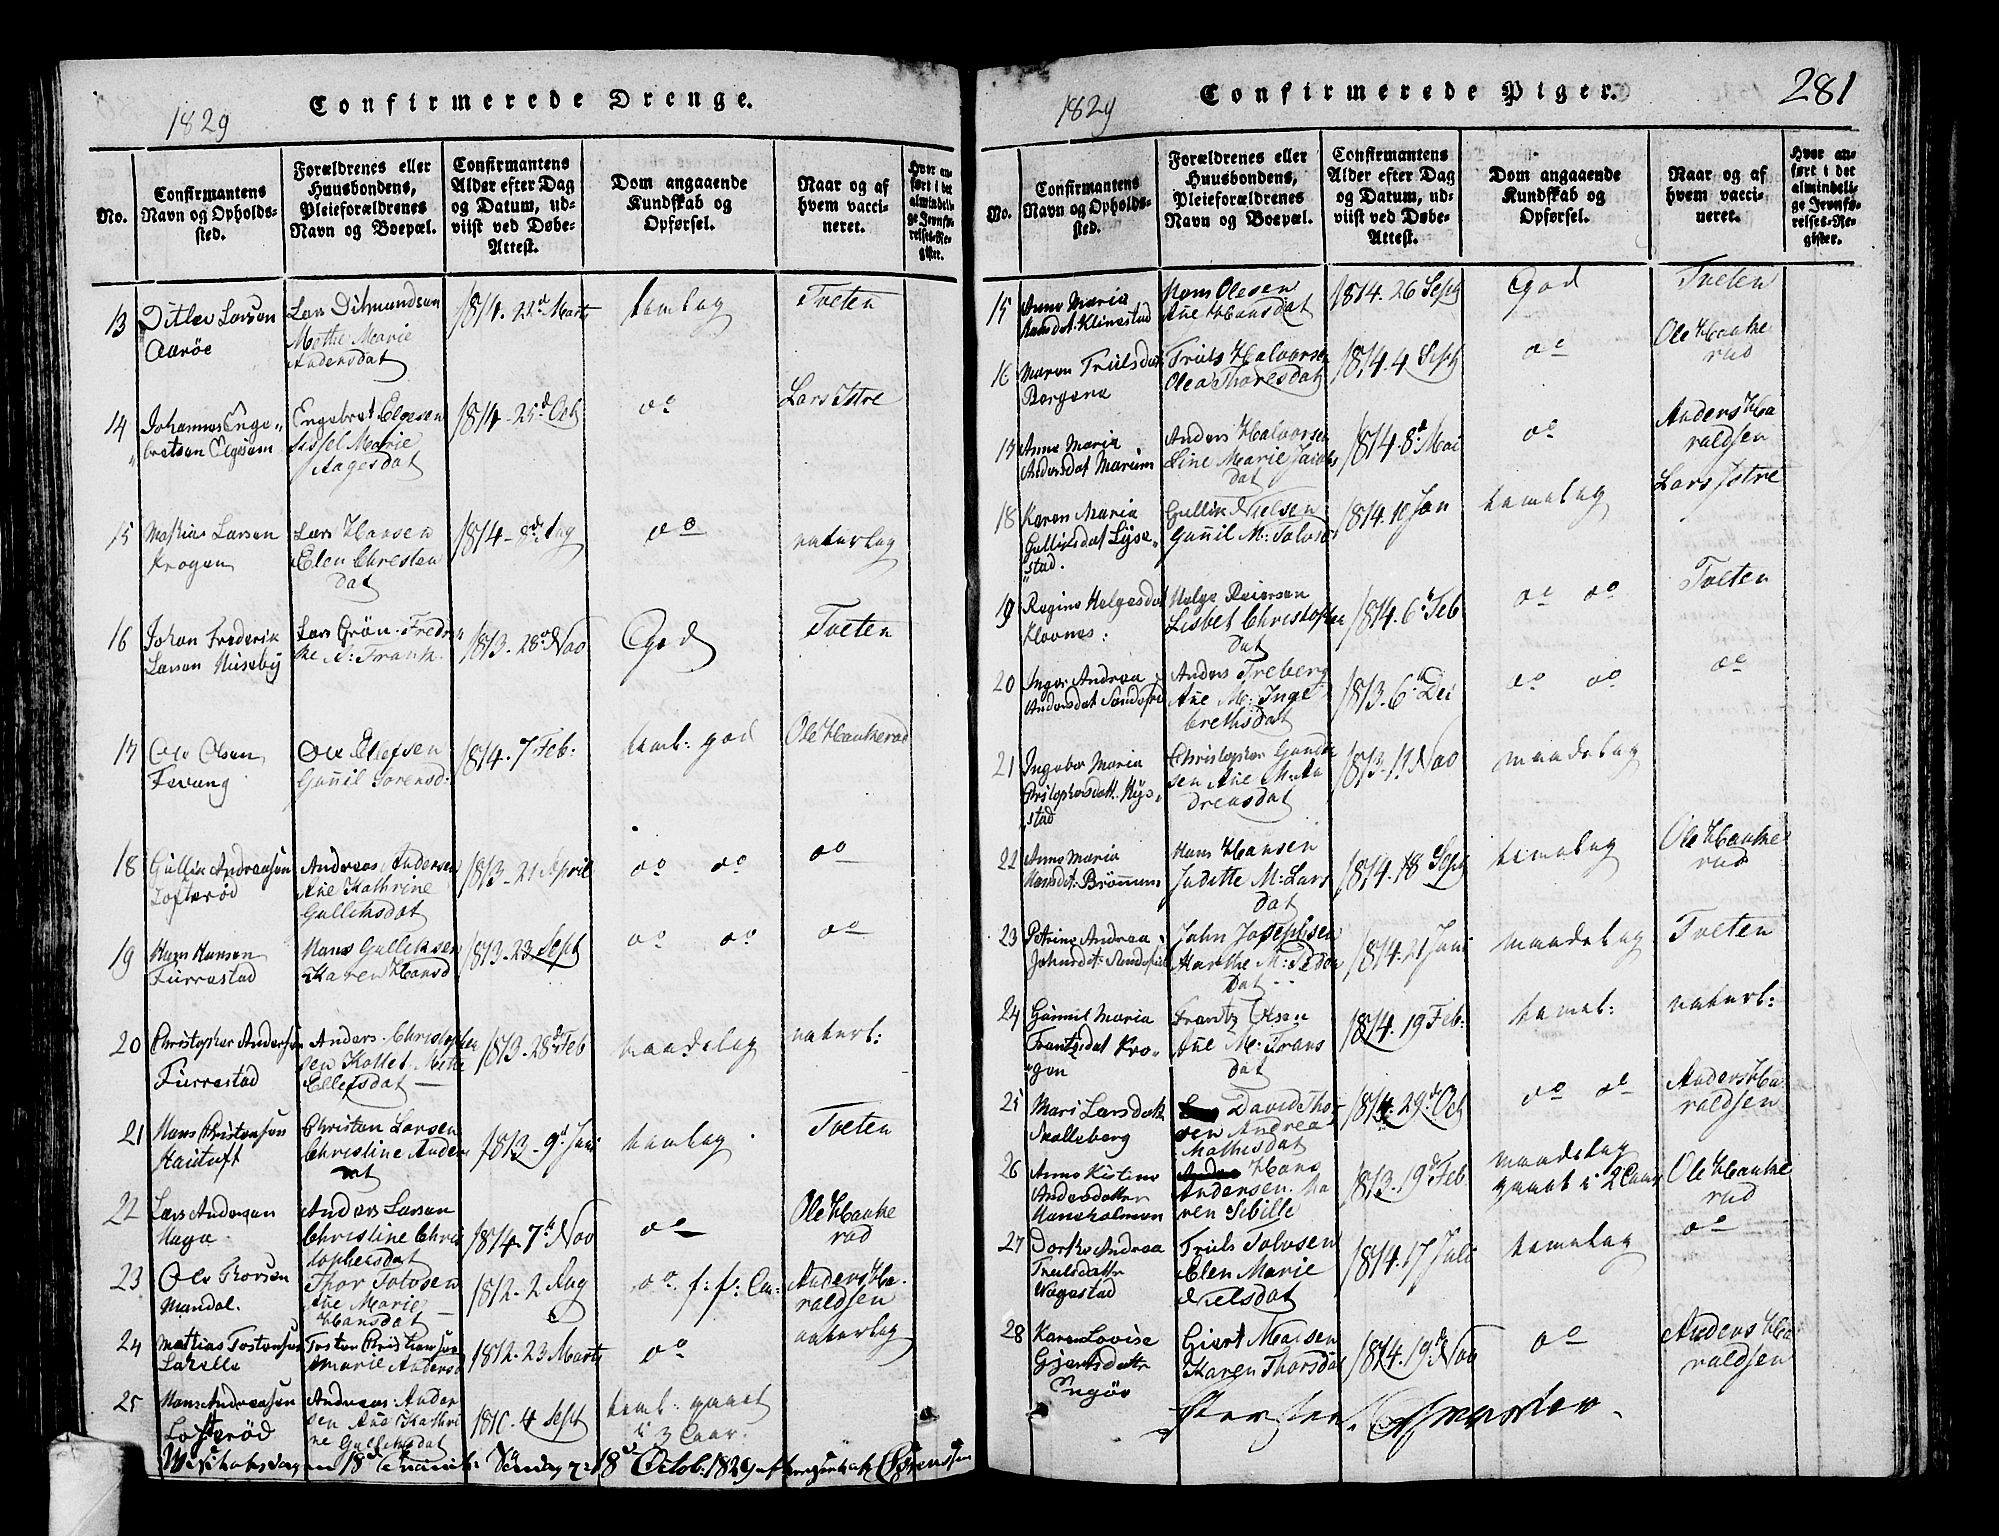 Confirmerede Drenge.
1829
No.
Confirmantens
Navn og Opholds-
sted.
Forældrenes eller
Huusbondens,
Pleieforældrenes
Navn og Boepæl.
Confirmantens
Alder efter Dag
og Datum, ud-
viist ved Døbe-
Attest.
Dom angaaende
Kundskab og
Opførsel.
Naar og af
hvem vacci-
neret.
Hvor an-
ført i det
almindeli-
ge Jevnfø-
relses-Re-
gister.
13
Ditlev Larsen
Aarøe
Lars Ditmundsen
Methe Marie
Andersdat
1814. 21d Marts
temlag
Tveten
14
Johannes Enge-
bretsen Elgesem
Engebret Elgesen
Sissel Marie
Aagesdat
1814-25d Oct
do
Lars Istre
15
Mathias Larsen
Krogen
Lars Hansen
Elen Christen
Dat
1814-8d Aug
do
naturlag
16
Johan Frederik
Larsen Huseby
Lars Grön. Fredri
ke M: Frank.
1813-28d Nov
God
Tveten
17
Ole Olsen
Fevang
Ole Ellefsen
Gunnil Sorensd.
1814. 7 Feb:
teml: god
Ole Haukerød
18
Gullik Andreasen
Lofterød
Andreas Andersen
Ane Kathrine
Gulliksdat
1813-21 April
do do
do
19
Hans Hansen
Furrestad
Hans Gulleksen
Karen Hansd
1813-23 Sept
do do
do
20
Christopher Andersen
Furrestad
Anders Christophe
sen Kollet. Mette
Ellefsdat
1813-28d Feb
maadelag
naturl:
21
Hans Christensen
Haituft
Christen Larsen
Christine Anders
dat
1813-9d Juni
temlag
Tveten
22
Lars Andersen
Haga
Anders Larsen
Christine Chris
tophersdat
1814 7d Nov
do
Ole Hauke
rød
23
Ole Thorsen
Mandal.
Thor Tolvsen
Ane Marie
Hansdat
1812-2 Aug
do
Anders Ha-
raldsen
24
Mathias Tostensen
Tosten Christensen
Marie Anders
1812-23 Marts
do
naturlag
25
Hans Andreasen
Lofterød
Andreas Ander
sen Ane Kathri
ne Gulliksdat
1810-4 Sept
teml: gaaet
i 3 Aar.
18d Octob: 1829
Confirmerede Piger.
1829
281
No.
Confirmantens
Navn og Opholds-
sted.
Forældrenes eller
Huusbondens,
Pleieforældrenes
Navn og Boepæl.
Confirmantens
Alder efter Dag
og Datum, ud-
viist ved Døbe-
Attest.
Dom angaaende
Kundskab og
Opførsel.
Naar og af
hvem vacci-
neret.
Hvor an-
ført i det
almindeli-
ge Jevnfø-
relses-Re-
gister.
15
Anne Maria
Hansdat: Klinestad
Hans Olesen
Ane Hansdat
1814. 26 Sept
God
Tveten
16
Maren Trulsdat
Bergene
Truls Halvorsen
Olea Thoresdat
1814 4 Sept
do
Ole Hauke
rød
17
Anne Maria
Andersdat Marum
Anders Halvorsen
Line Marie Jacobs
dat
1814 8d Mai
do
Anders Ha
raldsen
18
Karen Maria
Gulliksdat Lyse-
stad.
Gullik Nielsen
Gunnil M: Tolvs
1814. 10 Jan
temelag
Lars Istre
19
Regine Helgesdat
Klavnes:
Helge Reiersen
Lisbet Christophe
Dat
1814. 6d Feb
do do
Tveten
20
Inger Andrea
Andersdat Sandefi
Anders Treberg
Ane M: Inge
brethsdat
1813. 6d Dec
do do
do
21
Ingebor Maria
Christophersdatt. Nys-
stad
Christopher Gunde
sen Ane M: An
dreasdat
1813-11 Nov
maadelag
22
Anne Maria
Hansdat: Brönnum
Hans Hansen
Judithe M: Lars
dat
1814. 18 Sept
temelag
Ole Hauke
rød
23
Petrine Andrea
Johnsdat: Sandefi
John Josephsen
Marthe M: Peder
Dat
1814. 21 Juni
maadelag
Tveten
24
Gunnil Maria
Frantzdat Kro-
gen
Frantz Olsen
Ane M: Frans
dat
1814. 19 Feb:
temel:
naturl:
25
Mari Larsdatt
Skolleberg
David Tho
sen Andrea
Mathisdat
1813. 29d Oct
do do
Anders Ha
raldsen
26
Anne Kistine
Andersdatter
Hansholmen
Hans
Andersen. Ma
ren Sibille
1813. 19d Feb
maadelag
gaaet i 2 Aar
Ole Hauke
rød
27
Dorthe Andrea
Trulsdattr
Vagestad
Truls Tolvsen
Elen Marie
Nielsdat
1814. 17 Juli
temelag
do
28
Karen Lovise
Gjertsdattr
Engöe
Giert Matsen
Karen Thorsdat
1814. 19d Nov
do
Anders Ha
raldsen